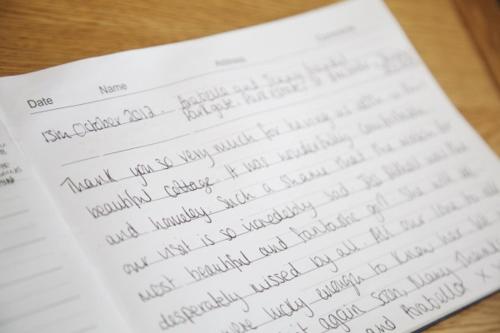 Date Name Address Comments
13th October 2012 - Arabella and
Parkgate
Thank you so very much for having us
beautiful cottage. It was wonderfully
and homeley. Such a shame that the reason for
our visit is so incredibly sad. She
most beautiful and fantastic girl. She will be
desperately missed by all. All our love to all
were lucky enough to know her
it again soon. Many Thanks
and Arabella x x